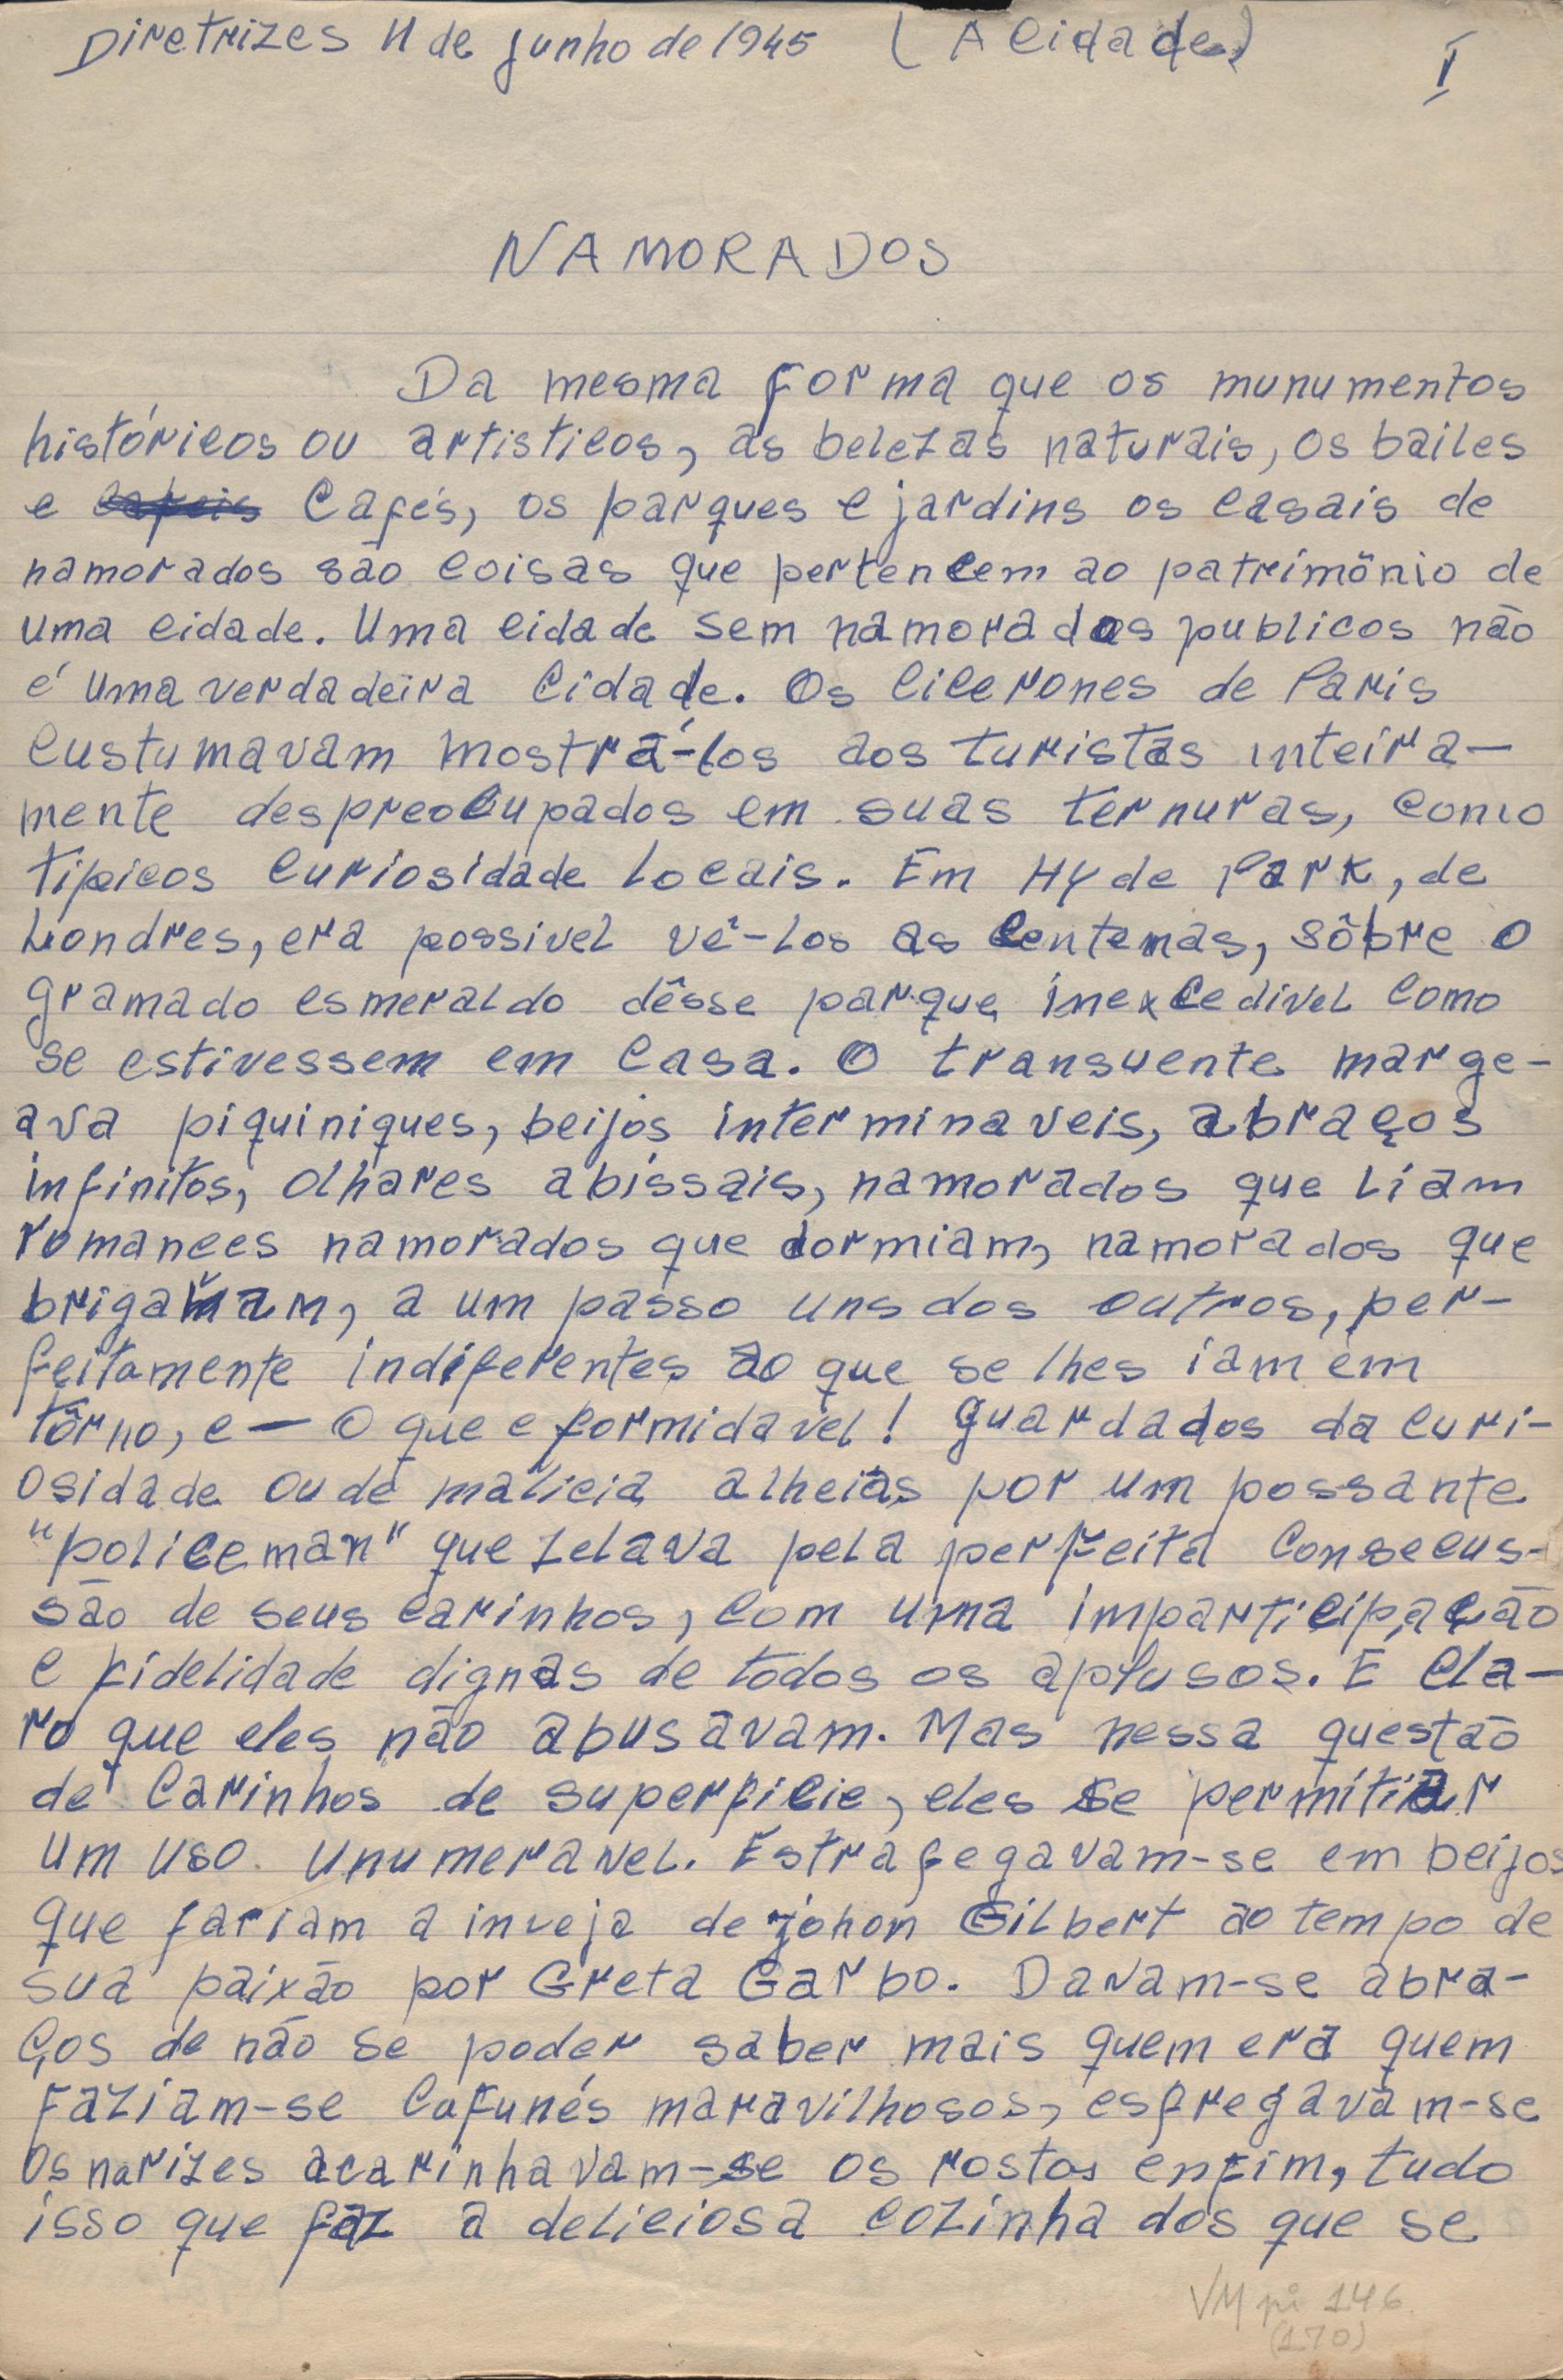 Diretrizes 11 de junho de 1945 (A Cidade)
I
NAMORADOS
Da mesma forma que os munumentos
históricos ou artisticos, as belezas naturais, os bailes
e Cafés, os parques e jardins os casais de
namorados são coisas que pertencem ao patrimônio de
uma cidade. Uma cidade sem namorados publicos não
é uma verdadeira Cidade. Os Cicerones de Paris
Custumavam mostrá-los aos turistas inteira-
mente despreocupados em suas ternuras, como
tipicos Curiosidade locais. Em Hyde Park, de
Londres, era possivel vê-los as centenas, sôbre o
gramado esmeraldo dêsse parque inexcedivel como
se estivessem em Casa. O transuente marge-
ava piquiniques, beijos interminaveis, abraços
infinitos, olhares abissais, namorados que liam
romances namorados que dormiam, namorados que
brigavam, a um passo uns dos outros, per-
feitamente indiferentes ao que se lhes iam em
tôrno, e — o que e formidavel! guardados da curi-
osidade ou de malicia alheias por um possante
"policeman" que zelava pela perfeita Consecus-
são de seus carinhos, com uma imparticipação
e fidelidade dignas de todos os aplusos. E Cla-
ro que eles não abusavam. Mas nessa questão
de Carinhos de superficie, eles se permitiar
um uso unumeravel. Estrafegavam-se em beijos
que fariam a inveja de johon Gilbert ao tempo de
sua paixão por Greta Garbo. Davam-se abra-
ços de não se poder saber mais quem era quem
Faziam-se Cafunés maravilhosos, esfregavam-se
os narizes acarinhavam-se os rostos enfim, tudo
isso que faz a deliciosa cozinha dos que se
VM pi 146
(170)